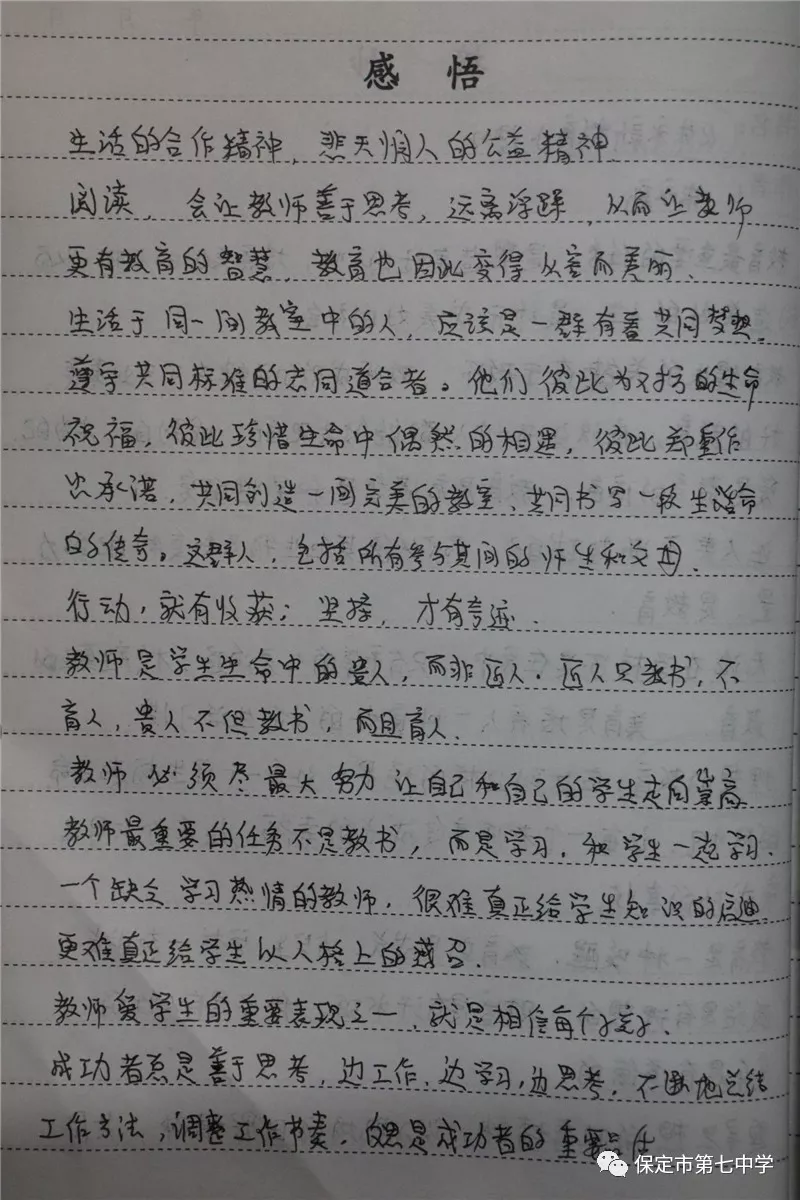 感 悟
生活的合作精神，悲天悯人的公益精神
阅读，会让教师善于思考，远离浮躁，从而让教师
更有教育的智慧，教育也因此变得从容而美丽、
生活于同一间教室中的人，应该是一群有着共同梦想
遵守共同标准的志同道合者。他们彼此为对方的生命
祝福，彼此珍惜生命中偶然的相遇，彼此郑重作
出承诺，共同创造一间完美的教室、共同书写一段生命
的传奇。这群人，包括所有参与其间的师生和父母、
行动，就有收获；坚持，才有奇迹．
教师是学生生命中的贵人，而非匠人．匠人只教书，不
育人，贵人不但教书，而且育人．
教师必须尽最大努力让自己和自己的学生走向崇高
教师最重要的任务不是教书，而是学习，和学生一起学习．
一个缺乏学习热情的教师，很难真正给学生知识的启迪
更难真正给学生以人格上的感召．
教师爱学生的重要表现之一，就是相信每个孩子、
成功者总是善于思考，边工作，边学习，边思考，不断地总结
工作方法，调整工作节奏，反思是成功者的重要品
保定市第七中学